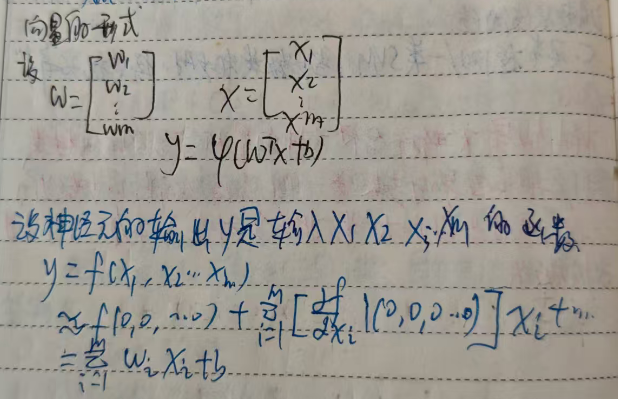 向量的形式
设
w=[w1 w2 ⋮ wm] x=[x1 x2 ⋮ xm]
y=φ(wᵀx+b)
设神经元的输出y是输入x1 x2 xi…xm的函数
y=f(x1,x2…xm)
≈f(0,0,…0)+∑_{i=1}^{m}[∂f/∂xi|(0,0,0…0)]xi+…
=∑_{i=1}^{m}wixi+b